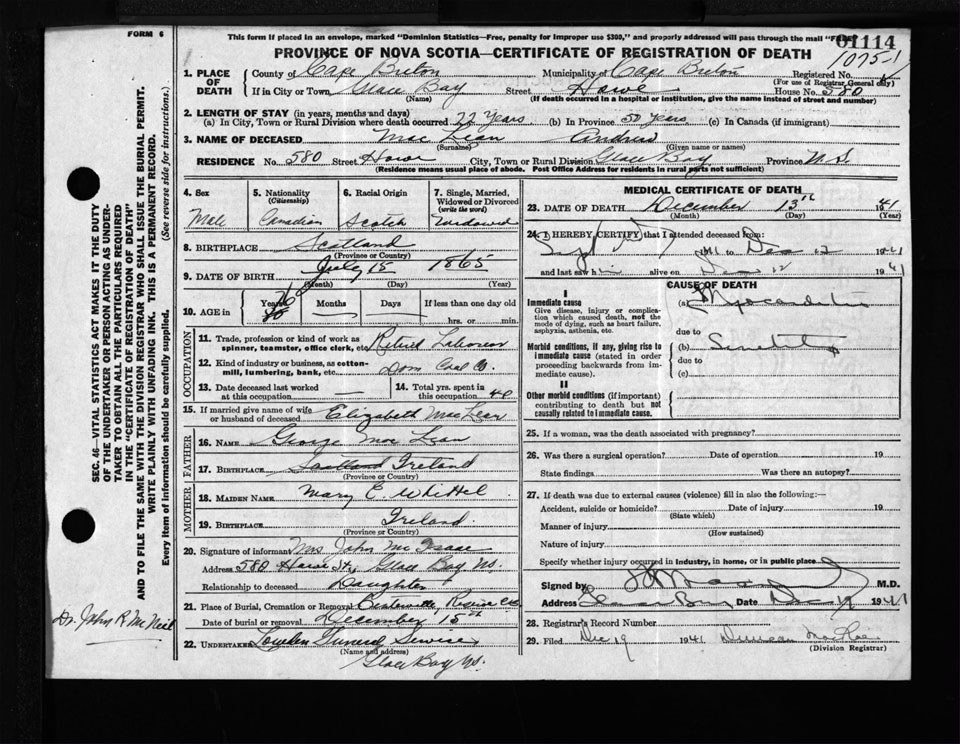 FORM 6
This form if placed in an envelope, marked "Dominion Statistics—Free, penalty for improper use $300," and properly addressed will pass through the mail "FREE"
01114
PROVINCE OF NOVA SCOTIA—CERTIFICATE OF REGISTRATION OF DEATH
1075-1
1. PLACE OF DEATH
County of Cape Breton Municipality of Cape Breton Registered No.
(For use of Registrar General only)
If in City or Town, Glace Bay Street Howe House No. 580
(Name) (If death occurred in a hospital or institution, give the name instead of street and number)
2. LENGTH OF STAY (in years, months and days)
(a) In City, Town or Rural Division where death occurred 22 Years (b) In Province 50 Years (c) In Canada (if immigrant)
3. NAME OF DECEASED Mac Lean Andrew
(Surname) (Given name or names)
RESIDENCE No. 580 Street Howe City, Town or Rural Division Glace Bay Province N.S.
(Residence means usual place of abode. Post Office Address for residents in rural parts not sufficient)
4. Sex 5. Nationality (Citizenship) 6. Racial Origin 7. Single, Married, Widowed or Divorced (write the word)
Male Canadian Scotch Widowed
8. BIRTHPLACE Scotland
(Province or Country)
9. DATE OF BIRTH July 15 1865
(Month) (Day) (Year)
10. AGE in Years 76 Months Days If less than one day old
hrs. or min.
OCCUPATION
11. Trade, profession or kind of work as spinner, teamster, office clerk, etc. Retired Laborer
12. Kind of industry or business, as cotton-mill, lumbering, bank, etc. Dom Coal Co.
13. Date deceased last worked at this occupation 14. Total yrs. spent in this occupation 40
15. If married give name of wife or husband of deceased Elizabeth MacLean
FATHER
16. NAME George Mac Lean
17. BIRTHPLACE Scotland Ireland
(Province or Country)
MOTHER
18. MAIDEN NAME Mary E. Whittel
19. BIRTHPLACE Ireland.
(Province or Country)
20. Signature of informant Mrs John Mc Isaac
Address 580 Howe St., Glace Bay NS.
Relationship to deceased Daughter
21. Place of Burial, Cremation or Removal
Date of burial or removal December 15th
22. UNDERTAKER Funeral Service
(Name and address)
Glace Bay NS.
MEDICAL CERTIFICATE OF DEATH
23. DATE OF DEATH December 13th 1941
(Month) (Day)
24. I HEREBY CERTIFY that I attended deceased from:
Sept 1941 to Dec 12 1941
and last saw him alive on Dec 12 1941
CAUSE OF DEATH
I
Immediate cause
Give disease, injury or complication which caused death, not the mode of dying, such as heart failure, asphyxia, asthenia, etc.
(a) Myocarditis
due to
Morbid conditions, if any, giving rise to immediate cause (stated in order proceeding backwards from immediate cause).
(b) Senility
due to
(c)
II
Other morbid conditions (if important) contributing to death but not causally related to immediate cause.
25. If a woman, was the death associated with pregnancy?
26. Was there a surgical operation? Date of operation 19
State findings Was there an autopsy?
27. If death was due to external causes (violence) fill in also the following:—
Accident, suicide or homicide? Date of injury 19
(State which)
Manner of injury
(How sustained)
Nature of injury
Specify whether injury occurred in Industry, in home, or in public place.
Signed by M.D.
Address Glace Bay Date Dec 19 1941
28. Registrar's Record Number
29. Filed Dec 19 1941 Duncan
(Division Registrar)
SEC. 46—VITAL STATISTICS ACT MAKES IT THE DUTY
OF THE UNDERTAKER OR PERSON ACTING AS UNDER-
TAKER TO OBTAIN ALL THE PARTICULARS REQUIRED
IN THE "CERTIFICATE OF REGISTRATION OF DEATH"
AND TO FILE THE SAME WITH THE DIVISION REGISTRAR WHO SHALL ISSUE THE BURIAL PERMIT.
WRITE PLAINLY WITH UNFADING INK. THIS IS A PERMANENT RECORD.
Every item of information should be carefully supplied. (See reverse side for instructions.)
Dr. John R. McNeil